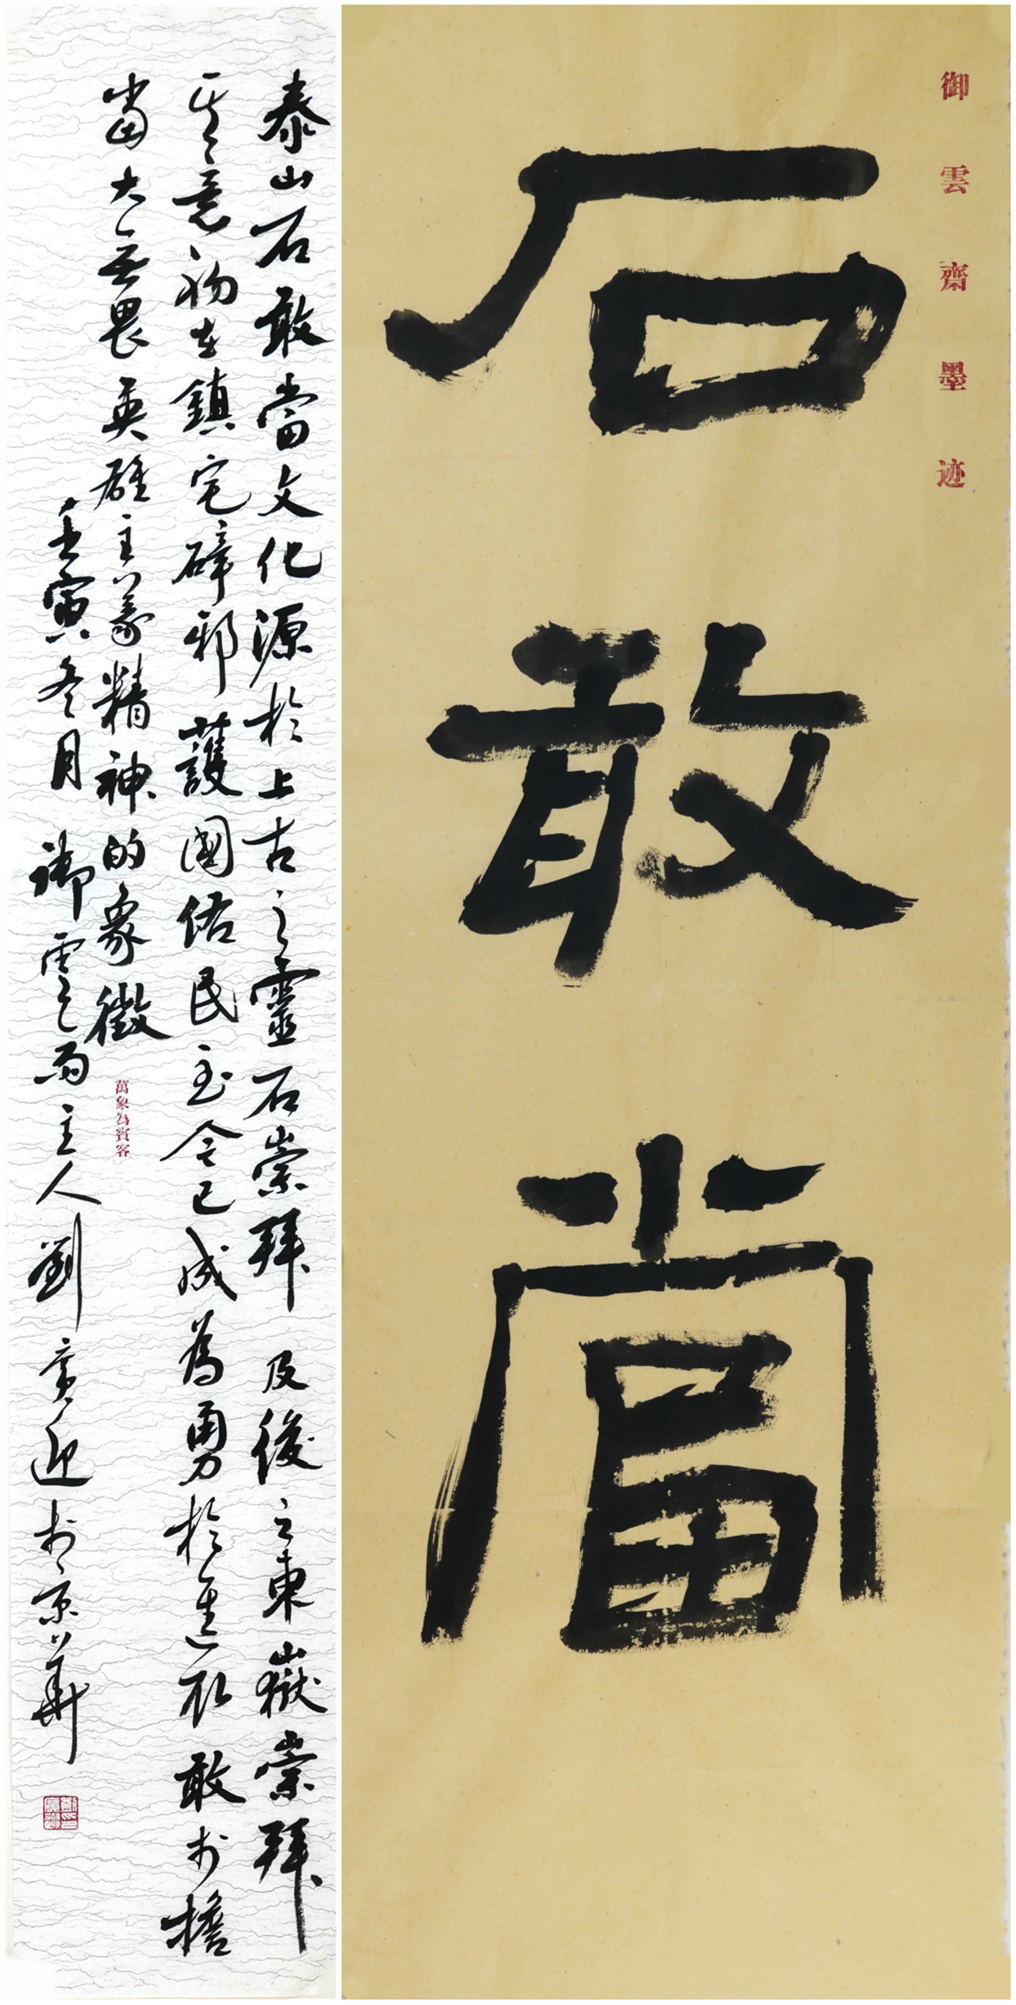 御雲齋墨迹
石敢當
泰山石敢當文化源於上古之靈石崇拜及後之東嶽崇拜
其意初在鎮宅辟邪護國佑民至今已成為勇於進取敢於擔
當大無畏英雄主義精神的象徵
萬象為賓客
壬寅冬月御雲齋主人劉廣迎於京華